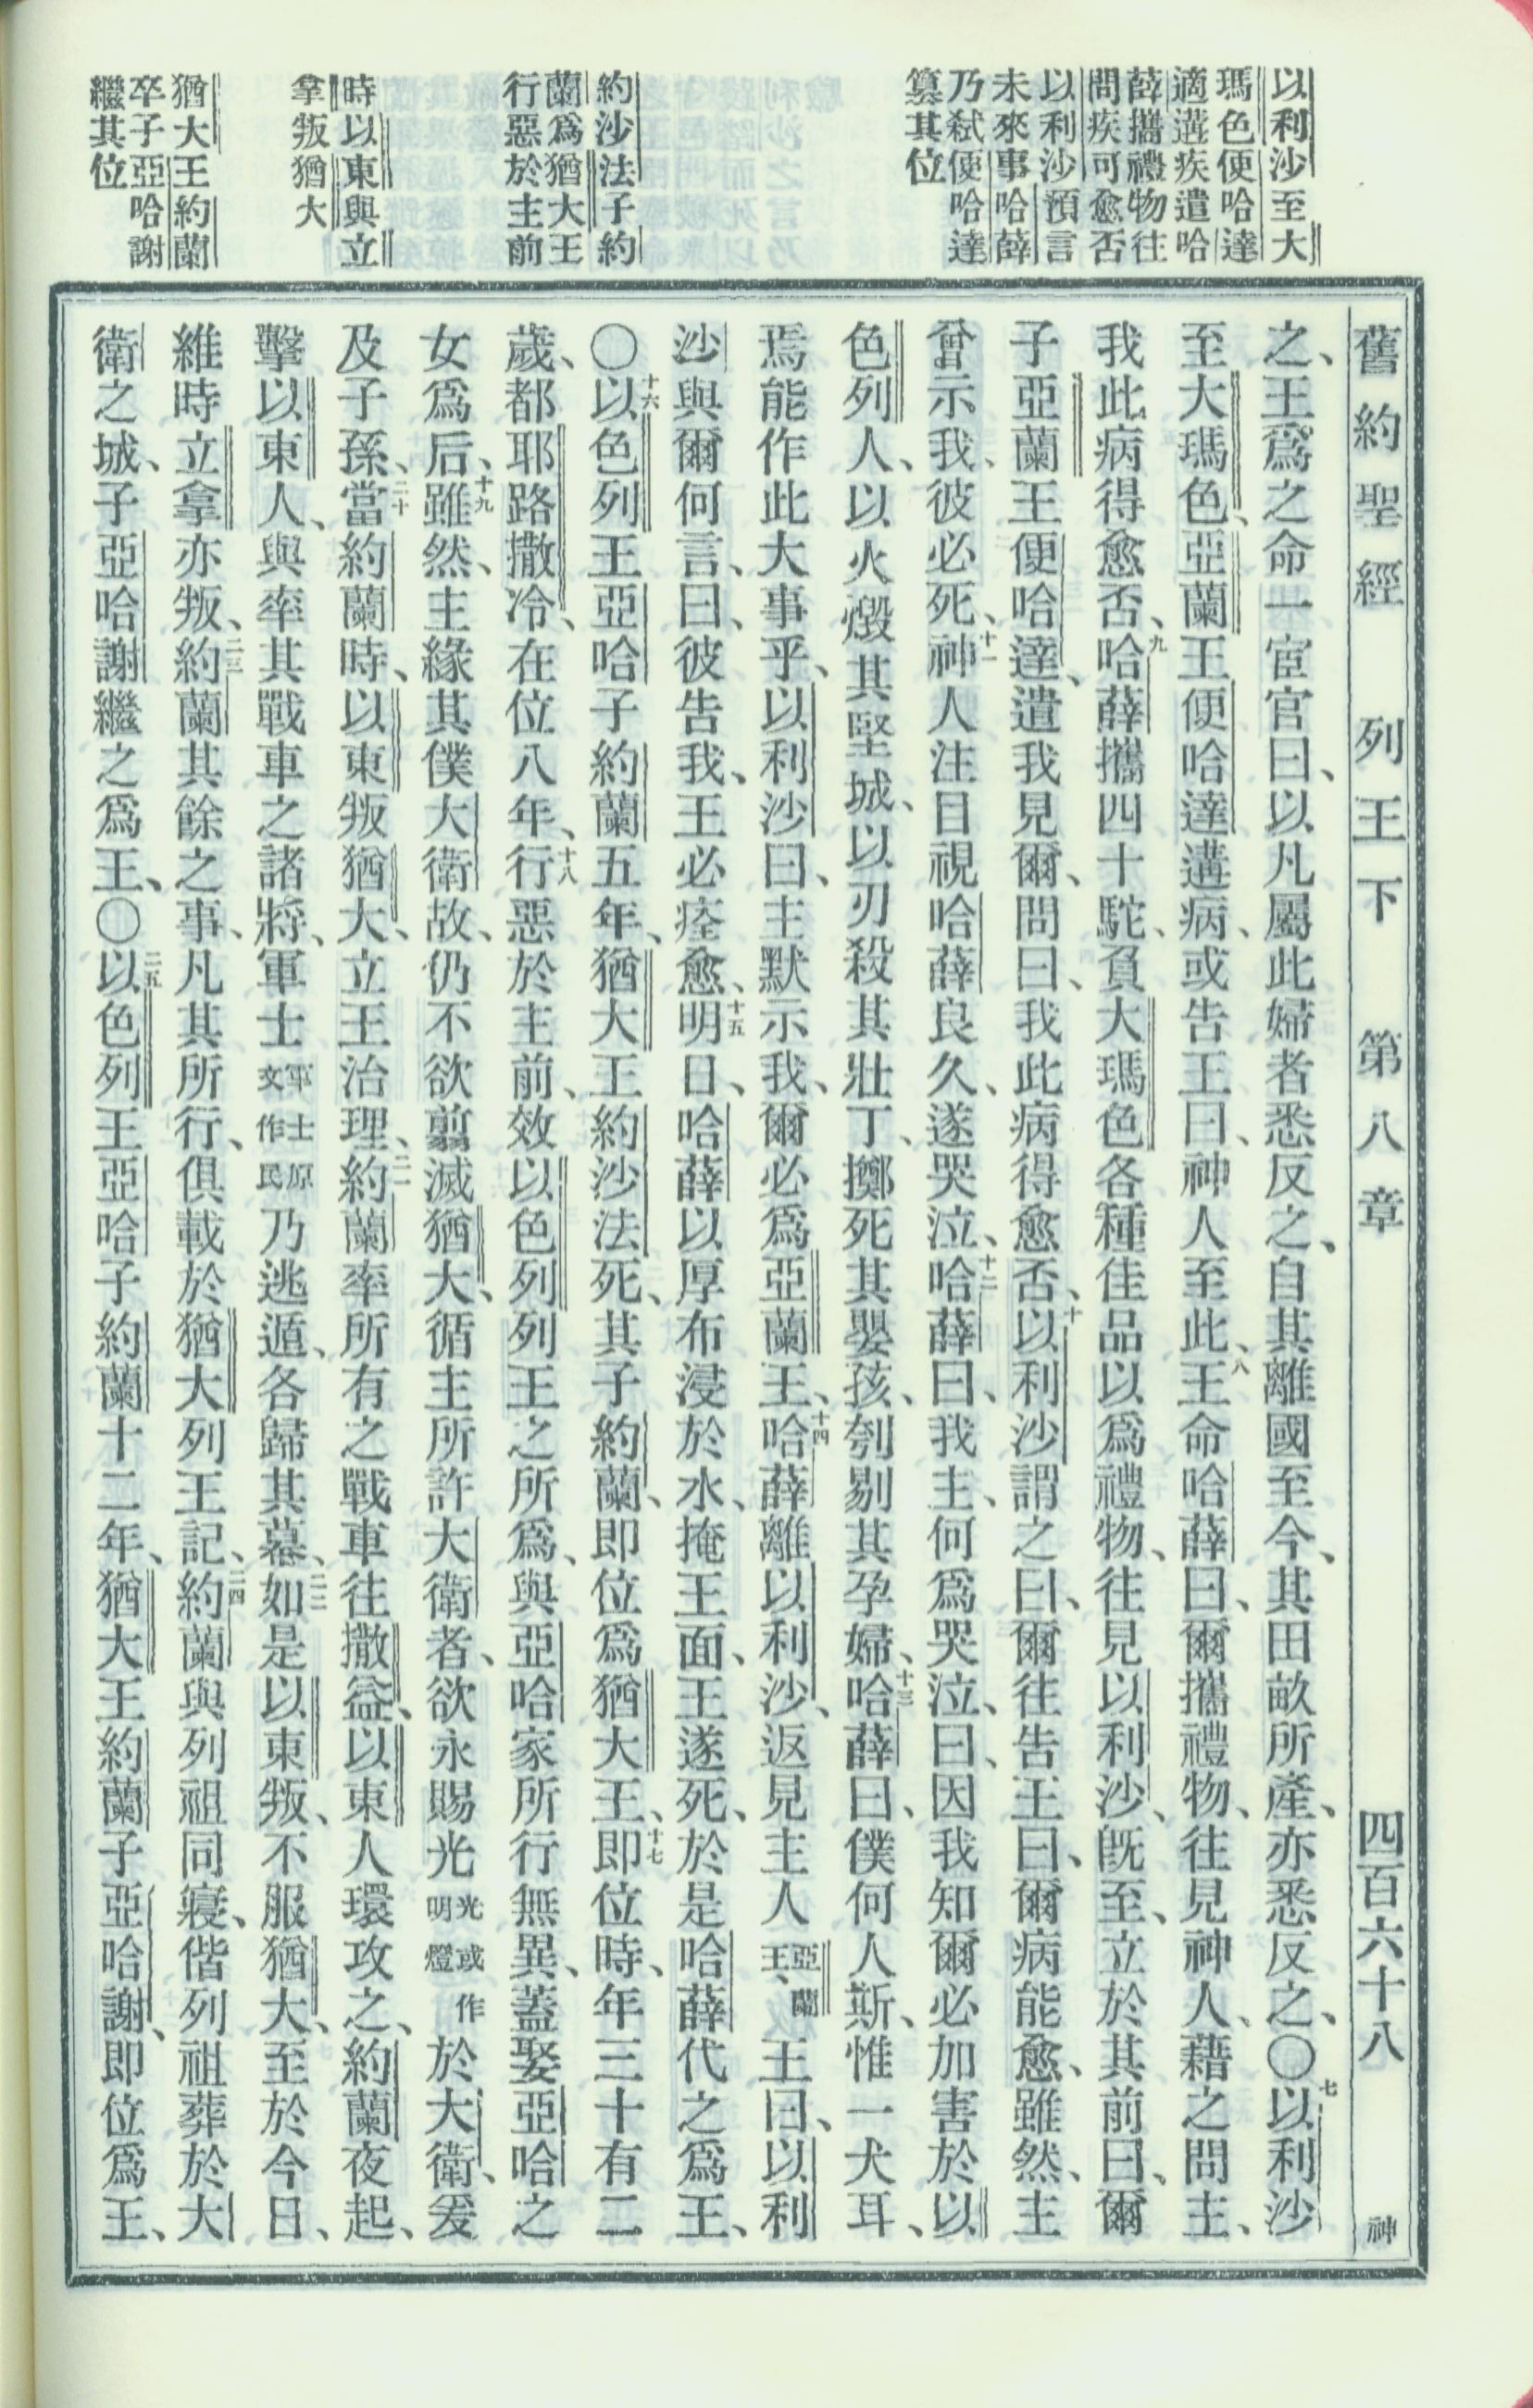 舊約聖經 列王下 第八章 四百六十八 神
以利沙至大
瑪色便哈達
適遘疾遣哈
薛攜禮物往
問疾可愈否
以利沙預言
未來事哈薛
乃弒便哈達
篡其位
約沙法子約
蘭爲猶大王
行惡於主前
時以東與立
拿叛猶大
猶大王約蘭
卒子亞哈謝
繼其位
之、王爲之命一宦官曰、以凡屬此婦者悉反之、自其離國至今、其田畝所產、亦悉反之、〇七以利沙
至大瑪色、亞蘭王便哈達遘病、或告王曰、神人至此、八王命哈薛曰、爾攜禮物、往見神人、藉之問主、
我此病得愈否、九哈薛攜四十駝、負大瑪色各種佳品以爲禮物、往見以利沙、旣至、立於其前曰、爾
子亞蘭王便哈達、遣我見爾、問曰、我此病得愈否、十以利沙謂之曰、爾往告王曰、爾病能愈、雖然、主
曾示我、彼必死、十一神人注目視哈薛良久、遂哭泣、十二哈薛曰、我主、何爲哭泣、曰、因我知爾必加害於以
色列人、以火燬其堅城、以刃殺其壯丁、擲死其嬰孩、刳剔其孕婦、十三哈薛曰、僕何人斯、惟一犬耳、
焉能作此大事乎、以利沙曰、主默示我、爾必爲亞蘭王、十四哈薛離以利沙、返見主人亞蘭王、王曰、以利
沙與爾何言、曰、彼告我、王必痊愈、十五明日、哈薛以厚布浸於水、掩王面、王遂死、於是哈薛代之爲王、
〇十六以色列王亞哈子約蘭五年、猶大王約沙法死、其子約蘭、即位爲猶大王、十七即位時、年三十有二
歲、都耶路撒冷、在位八年、十八行惡於主前、效以色列列王之所爲、與亞哈家所行無異、蓋娶亞哈之
女爲后、十九雖然、主緣其僕大衛故、仍不欲翦滅猶大、循主所許大衛者、欲永賜光光或作明燈於大衛、爰
及子孫、二十當約蘭時、以東叛猶大、立王治理、二一約蘭率所有之戰車往撒益、以東人環攻之、約蘭夜起、
擊以東人、與率其戰車之諸將、軍士軍士原文作民乃逃遁、各歸其幕、二二如是以東叛、不服猶大、至於今日、
維時立拿亦叛、二三約蘭其餘之事、凡其所行、俱載於猶大列王記、二四約蘭與列祖同寢、偕列祖葬於大
衛之城、子亞哈謝繼之爲王、〇二五以色列王亞哈子約蘭十二年、猶大王約蘭子亞哈謝、即位爲王、